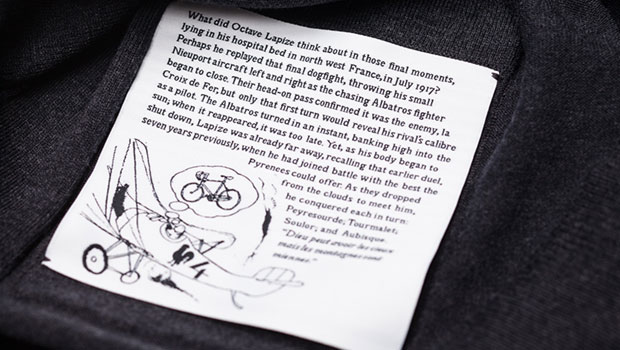 What did Octave Lapize think about in those final moments,
lying in his hospital bed in north west France, in July 1917?
Perhaps he replayed that final dogfight, throwing his small
Nieuport aircraft left and right as the chasing Albatros fighter
began to close. Their head-on pass confirmed it was the enemy, la
Croix de Fer, but only that first turn would reveal his rival's calibre
as a pilot. The Albatros turned in an instant, banking high into the
sun; when it reappeared, it was too late. Yet, as his body began to
shut down, Lapize was already far away, recalling that earlier duel,
seven years previously, when he had joined battle with the best the
Pyrenees could offer. As they dropped
from the clouds to meet him,
he conquered each in turn:
Peyresourde; Tourmalet;
Soulor; and Aubisque.
"Dieu peut avoir les cieux
mais les montagnes sont
miennes."
4